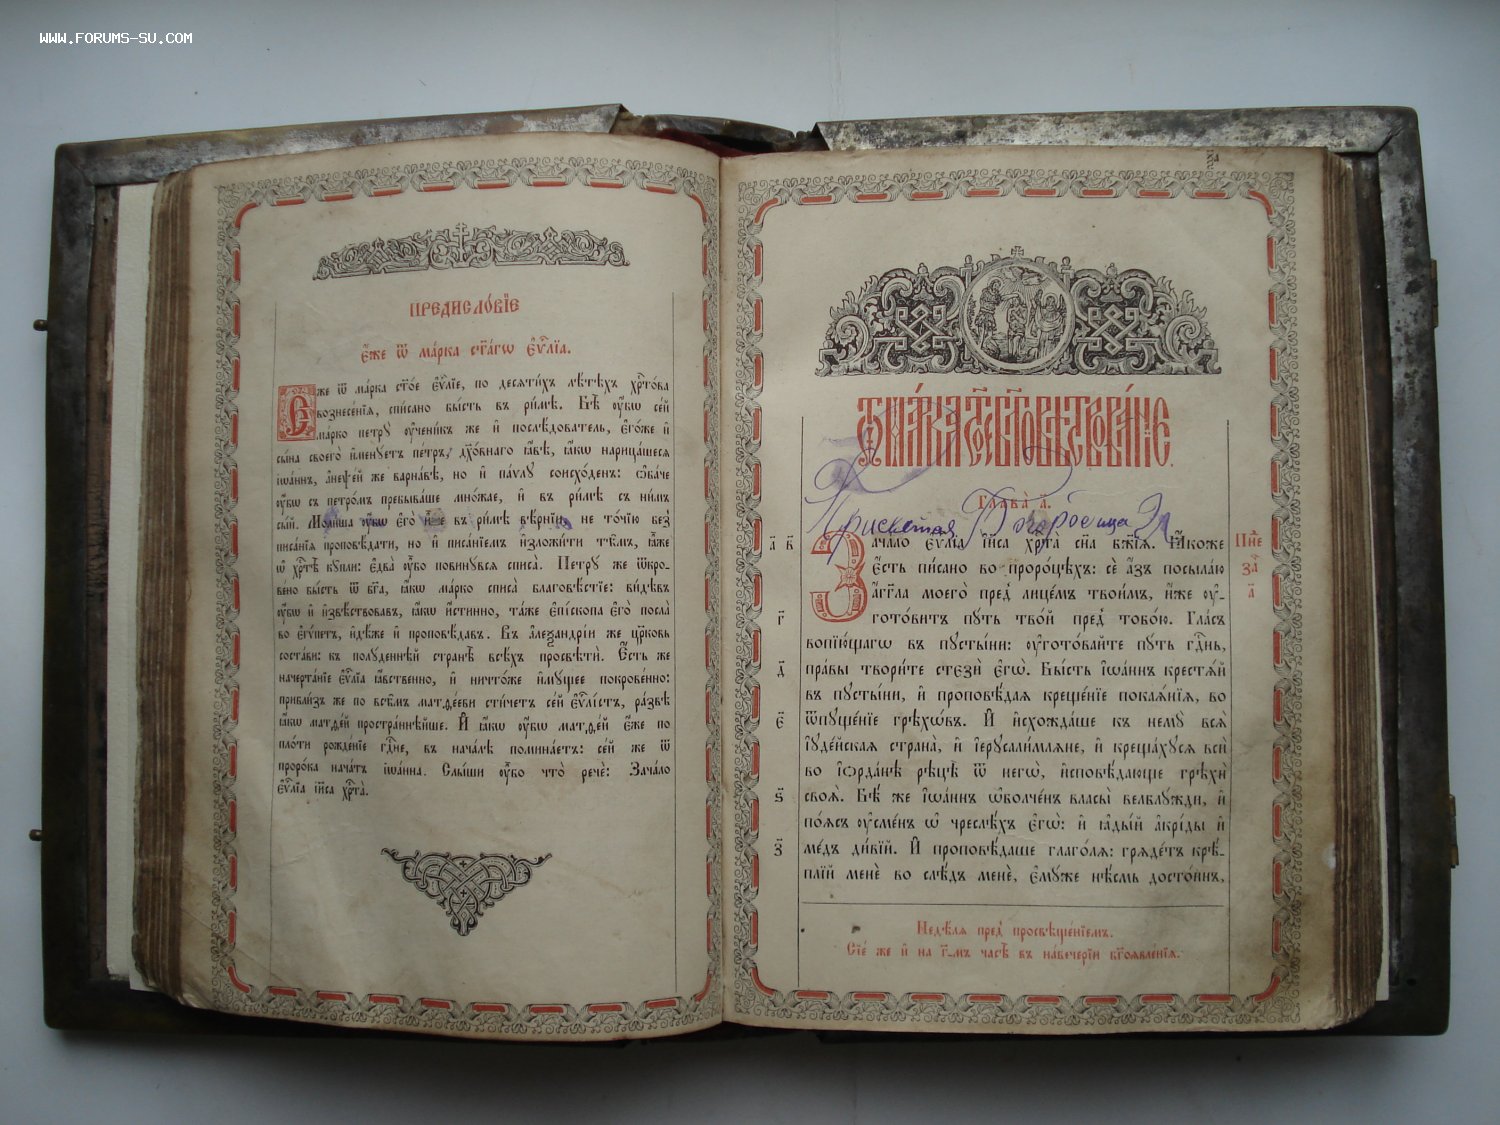 WWW.FORUMS-SU.COM
ПРЕДИСЛО́ВЇЕ
Є҆́же ѿ ма́рка ст҃а́гѡ є҆ѵⷢ҇лїа.
Є҆́же ѿ ма́рка ст҃о́е є҆ѵⷢ҇лїе, по десѧти́хъ лѣ́тѣхъ хрⷭ҇то́ва
вознесе́нїѧ, спи́сано бы́сть въ ри́мѣ. Бѣ̀ ᲂу҆́бѡ се́й
ма́рко петрꙋ̀ ᲂу҆чени́къ же и҆ послѣ́дователь, є҆го́же и҆
сы́на своего̀ и҆менꙋ́етъ пе́тръ, дꙋхо́внаго ꙗ҆́вѣ, ꙗ҆́кѡ нарица́шесѧ
і҆ѡа́ннъ, а҆неѱе́й же варна́вѣ, но и҆ па́ѵлꙋ соисхо́денъ: ѻ҆ба́че
ᲂу҆́бѡ съ петро́мъ пребыва́ше мно́жае, и҆ въ ри́мѣ съ ни́мъ
сы́й. Моли́ша ᲂу҆́бѡ є҆го̀ и҆̀же въ ри́мѣ вѣ́рнїи, не то́чїю без̾
писа́нїѧ проповѣ́дати, но и҆ писа́нїемъ и҆зложи́ти тѣ̑мъ, ꙗ҆̀же
ѡ҆ хрⷭ҇тѣ̀ кꙋ́пли: є҆два̀ ᲂу҆́бо повинꙋ́всѧ списа̀. Петрꙋ́ же ѿкро-
ве́но бы́сть ѿ бг҃а, ꙗ҆́кѡ ма́рко списа̀ благовѣ́стїе: ви́дѣвъ
ᲂу҆́бѡ и҆ и҆звѣ́ствовавъ, ꙗ҆́кѡ и҆́стинно, та́же є҆пі́скопа є҆го̀ посла̀
во є҆гѵ́петъ, и҆дѣ́же и҆ проповѣ́давъ. Въ а҆леѯандрі́и же цр҃ковь
соста́ви: къ полꙋ́деннѣй странѣ̀ всѣ́хъ просвѣти̇̀. Є҆́сть же
начерта́нїе є҆ѵⷢ҇лїа ꙗ҆́вственно, и҆ ничто́же и҆мꙋ́щее покрове́нно:
прибли́зъ же по всѣ̑мъ матѳе́еви сти́четъ се́й є҆ѵⷢ҇лі́стъ, ра́звѣ
ꙗ҆́кѡ матѳе́й простра́ннѣйше. И҆ ꙗ҆́кѡ ᲂу҆́бѡ матѳе́й є҆́же по
пло́ти рожде́нїе гдⷭ҇не, въ нача́лѣ помина́етъ: се́й же ѿ
проро́ка нача́тъ і҆ѡа́нна. Слы́ши ᲂу҆́бо что̀ рече̇̀: Зача́ло
є҆ѵⷢ҇лїа і҆и҃са хрⷭ҇та̀.
Ѿ МА́РКА СТ҃О́Е БЛГОВѢСТВОВА́НЇЕ.
Глава̀ а҃.
Присветая Богородица
Зача́ло є҆ѵⷢ҇лїа і҆и҃са хрⷭ҇та̀ сн҃а бж҃їѧ. Ꙗ҆́коже
є҆́сть пи́сано во проро́цѣхъ: сѐ а҆́зъ посыла́ю
а҆́гг҃ла моего̀ пред̾ лице́мъ твои́мъ, и҆́же ᲂу҆-
гото́витъ пꙋ́ть тво́й пред̾ тобо́ю. Гла́съ
вопїю́щагѡ въ пꙋсты́ни: ᲂу҆гото́вайте пꙋ́ть гдⷭ҇нь,
пра́вы твори́те стєзѝ є҆гѡ̀. Бы́сть і҆ѡа́ннъ крестѧ́й
въ пꙋсты́ни, и҆ проповѣ́даѧ креще́нїе покаѧ́нїѧ, во
ѿпꙋще́нїе грѣхѡ́въ. И҆ и҆схожда́ше къ немꙋ̀ всѧ̀
і҆ꙋде́йскаѧ страна̀, и҆ і҆ерꙋсали́млѧне, и҆ креща́хꙋсѧ всѝ
во і҆ѻрда́нѣ рѣцѣ̀ ѿ негѡ̀, и҆сповѣ́дающе грѣхѝ
своѧ̀. Бѣ́ же і҆ѡа́ннъ ѡ҆болче́нъ власы̀ велблꙋ́жди, и҆
по́ѧсъ ᲂу҆сме́нъ ѡ҆ чресле́хъ є҆гѡ̀: и҆ ꙗ҆ды́й а҆кри́ды и҆
ме́дъ ди́вїй. И҆ проповѣ́даше глаго́лѧ: грѧде́тъ крѣ́-
плїй менѐ во слѣ́дъ менѐ, є҆мꙋ́же нѣ́смь досто́инъ,
а҃ в҃
г҃
д҃
є҃
ѕ҃
з҃
Пⷩ҇е
за҃
а҃
Недѣ́лѧ пред̾ просвѣще́нїемъ.
Сїе́ же и҆ на г҃-мъ часѣ̀ въ наве́черїи бг҃оѧвле́нїѧ.